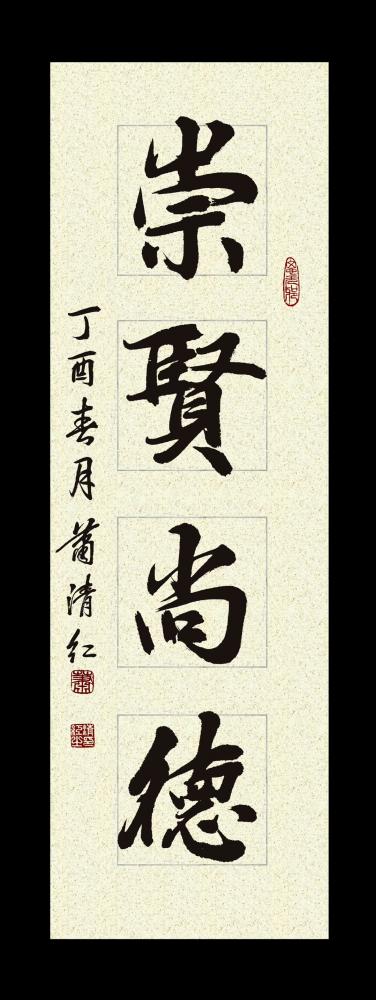 崇賢尚德
丁酉春月蕭清红